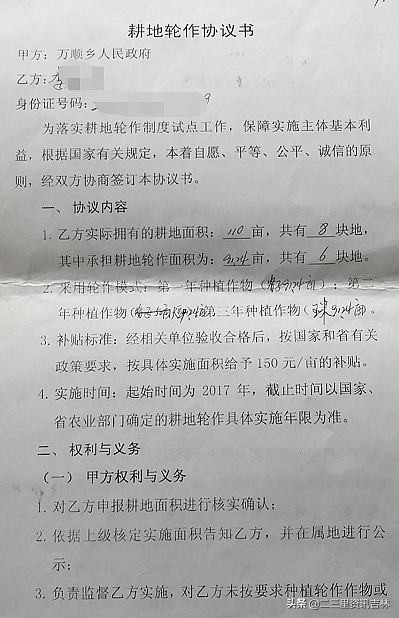 耕地轮作协议书
甲方：万顺乡人民政府
乙方：李
身份证号码：
为落实耕地轮作制度试点工作，保障实施主体基本利
益，根据国家有关规定，本着自愿、平等、公平、诚信的原
则，经双方协商签订本协议书。
一、协议内容
1. 乙方实际拥有的耕地面积：110亩，共有8块地，
其中承担耕地轮作面积为：91.24亩，共有6块地。
2. 采用轮作模式：第一年种植作物（亩）；第二
年种植作物（第三年种植作物（亩）。
3. 补贴标准：经相关单位验收合格后，按国家和省有关
政策要求，按具体实施面积给予150元/亩的补贴。
4. 实施时间：起始时间为2017年，截止时间以国家、
省农业部门确定的耕地轮作具体实施年限为准。
二、权利与义务
（一）甲方权利与义务
1. 对乙方申报耕地面积进行核实确认；
2. 依据上级核定实施面积告知乙方，并在属地进行公
示；
3. 负责监督乙方实施，对乙方未按要求种植轮作作物或
头条 @二三里资讯吉林